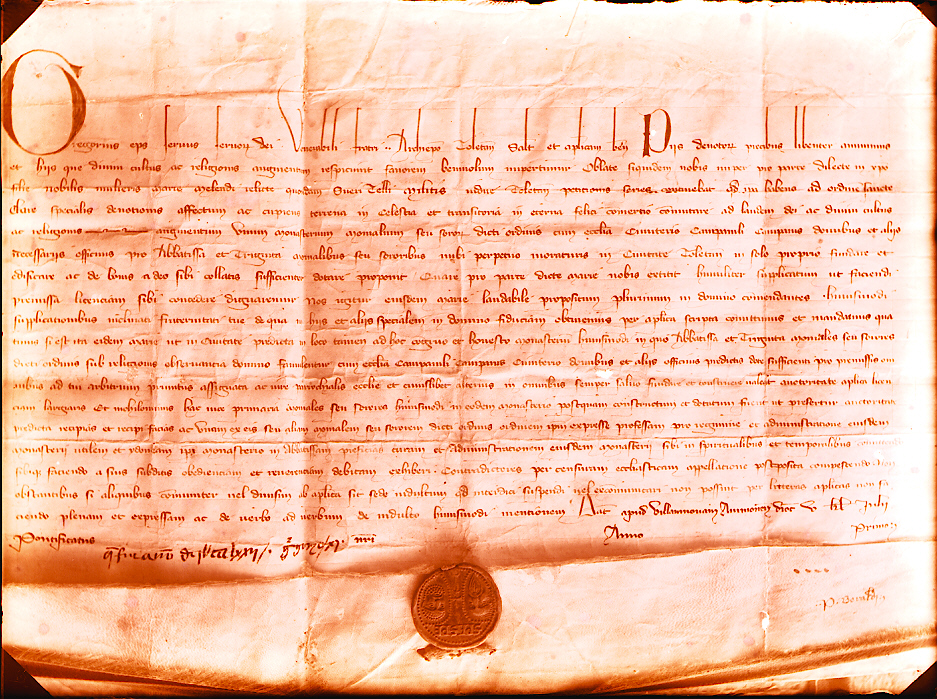 Gregorius eps servus servor dei Venerabili fratri .. Archiepo Toletan Salt et aplicam ben Piis devotor precibus libenter annuimus
et hijs que divini cultus ac religionis augmentum respiciunt favorem benivolum impertimur Oblate siquidem nobis nuper pro parte dilecte in xpo
filie nobilis mulieris Marie Melendi relicte quondam Sueri Telli Militis vidue Toletan petitionis series continebat qd ipa habens ad ordinem sancte
Clare specialis devotionis affectum ac cupiens terrena in Celestia et transitoria in eterna felici comertio comutare ad laudem dei ac divini cultus
ac religionis augmentum Unum monasterium monialium seu soror dicti ordinis cum ecclia Cimiterio Campanili Campana domibus et alijs
necessarijs officinis pro Abbatissa et Triginta monialibus seu sororibus inibi perpetuo moraturis in Civitate Toletan in solo proprio fundare et
edificare ac de bonis a deo sibi collatis sufficienter dotare proponit Quare pro parte dicte Marie nobis extitit humiliter supplicatum ut faciendi
premissa licenciam sibi concedere dignaremur Nos igitur eiusdem Marie laudabile propositum plurimum in domino comendantes huiusmodi
supplicationibus inclinati fraternitati tue de qua in hijs et alijs specialem in domino fiduciam obtinemus per aplica scripta comittimus et mandamus qua
tinus si est ita eidem Marie ut in Civitate predicta in loco tamen ad hoc congruo et honesto monasterium huiusmodi in quo Abbatissa et Triginta moniales seu sorores
dicti ordinis sub religionis observantia domino famulentur cum ecclia Campanili Campana Cimiterio domibus et alijs officinis predictis dote sufficienti pro premissis om
nibus ad tui arbitrium primitus assignata ac iure parrochialis ecclie et cuiuslibet alterius in omnibus semper salvo fundare et construere valeat auctoritate aplica licen
ciam largiaris Et nichilominus hac vice primaria moniales seu sorores huiusmodi in eodem monasterio postquam constructum et dotatum fuerit ut prefertur auctoritate
predicta recipias et recipi facias ac Unam ex eis seu aliam monialem seu sororem dicti ordinis ordinem ipm expresse professam pro regimine et administratione eiusdem
monasterij utilem et ydoneam ipi monasterio in Abbatissam preficias curam et administrationem eiusdem monasterij sibi in spiritualibus et temporalibus comittendo
sibique faciendo a suis subditis obedienciam et reverentiam debitam exhiberi Contradictores per censuram ecclesiasticam appellatione postposita compescendo Non
obstantibus si aliquibus comuniter vel divisim ab aplica sit sede indultum qd interdici suspendi vel excomunicari non possint per litteras aplicas non fa
ciendo plenam et expressam ac de verbo ad verbum de indulto huiusmodi mentionem Dat apud Villamnovam Avinionen dioc V kl Julij
Pontificatus nri Anno Primo